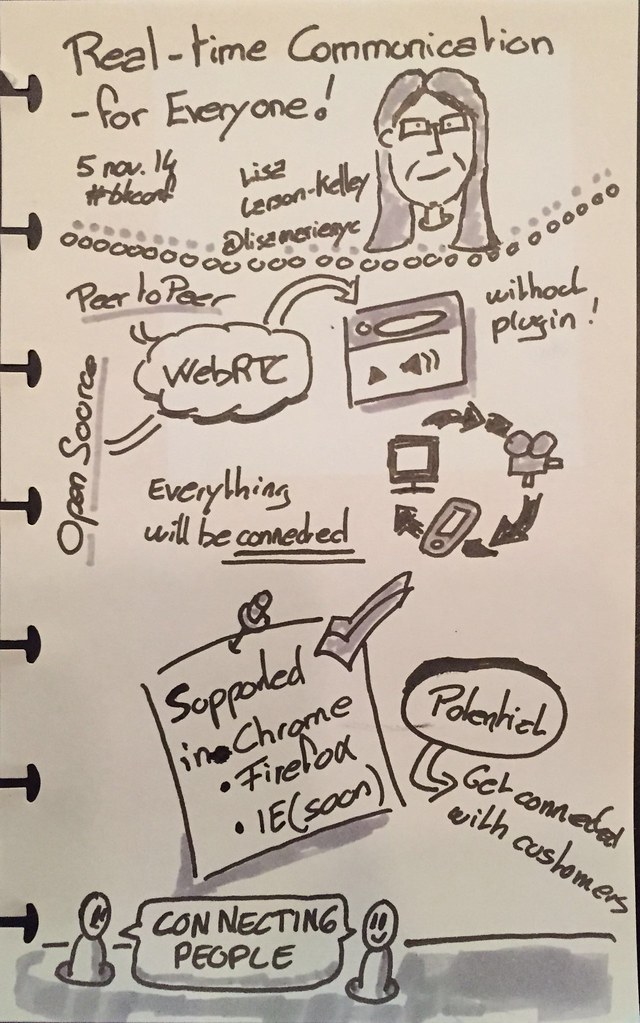 Real-time Communication
- for Everyone!
5 nov. 14
#btconf
Lisa
Larson-Kelley
@lisamarienyc
Peer to Peer
WebRTC
without
plugin!
Open Source
Everything
will be connected
Supported
in • Chrome
• Firefox
• IE (soon)
Potential
Get connected
with customers
CONNECTING
PEOPLE